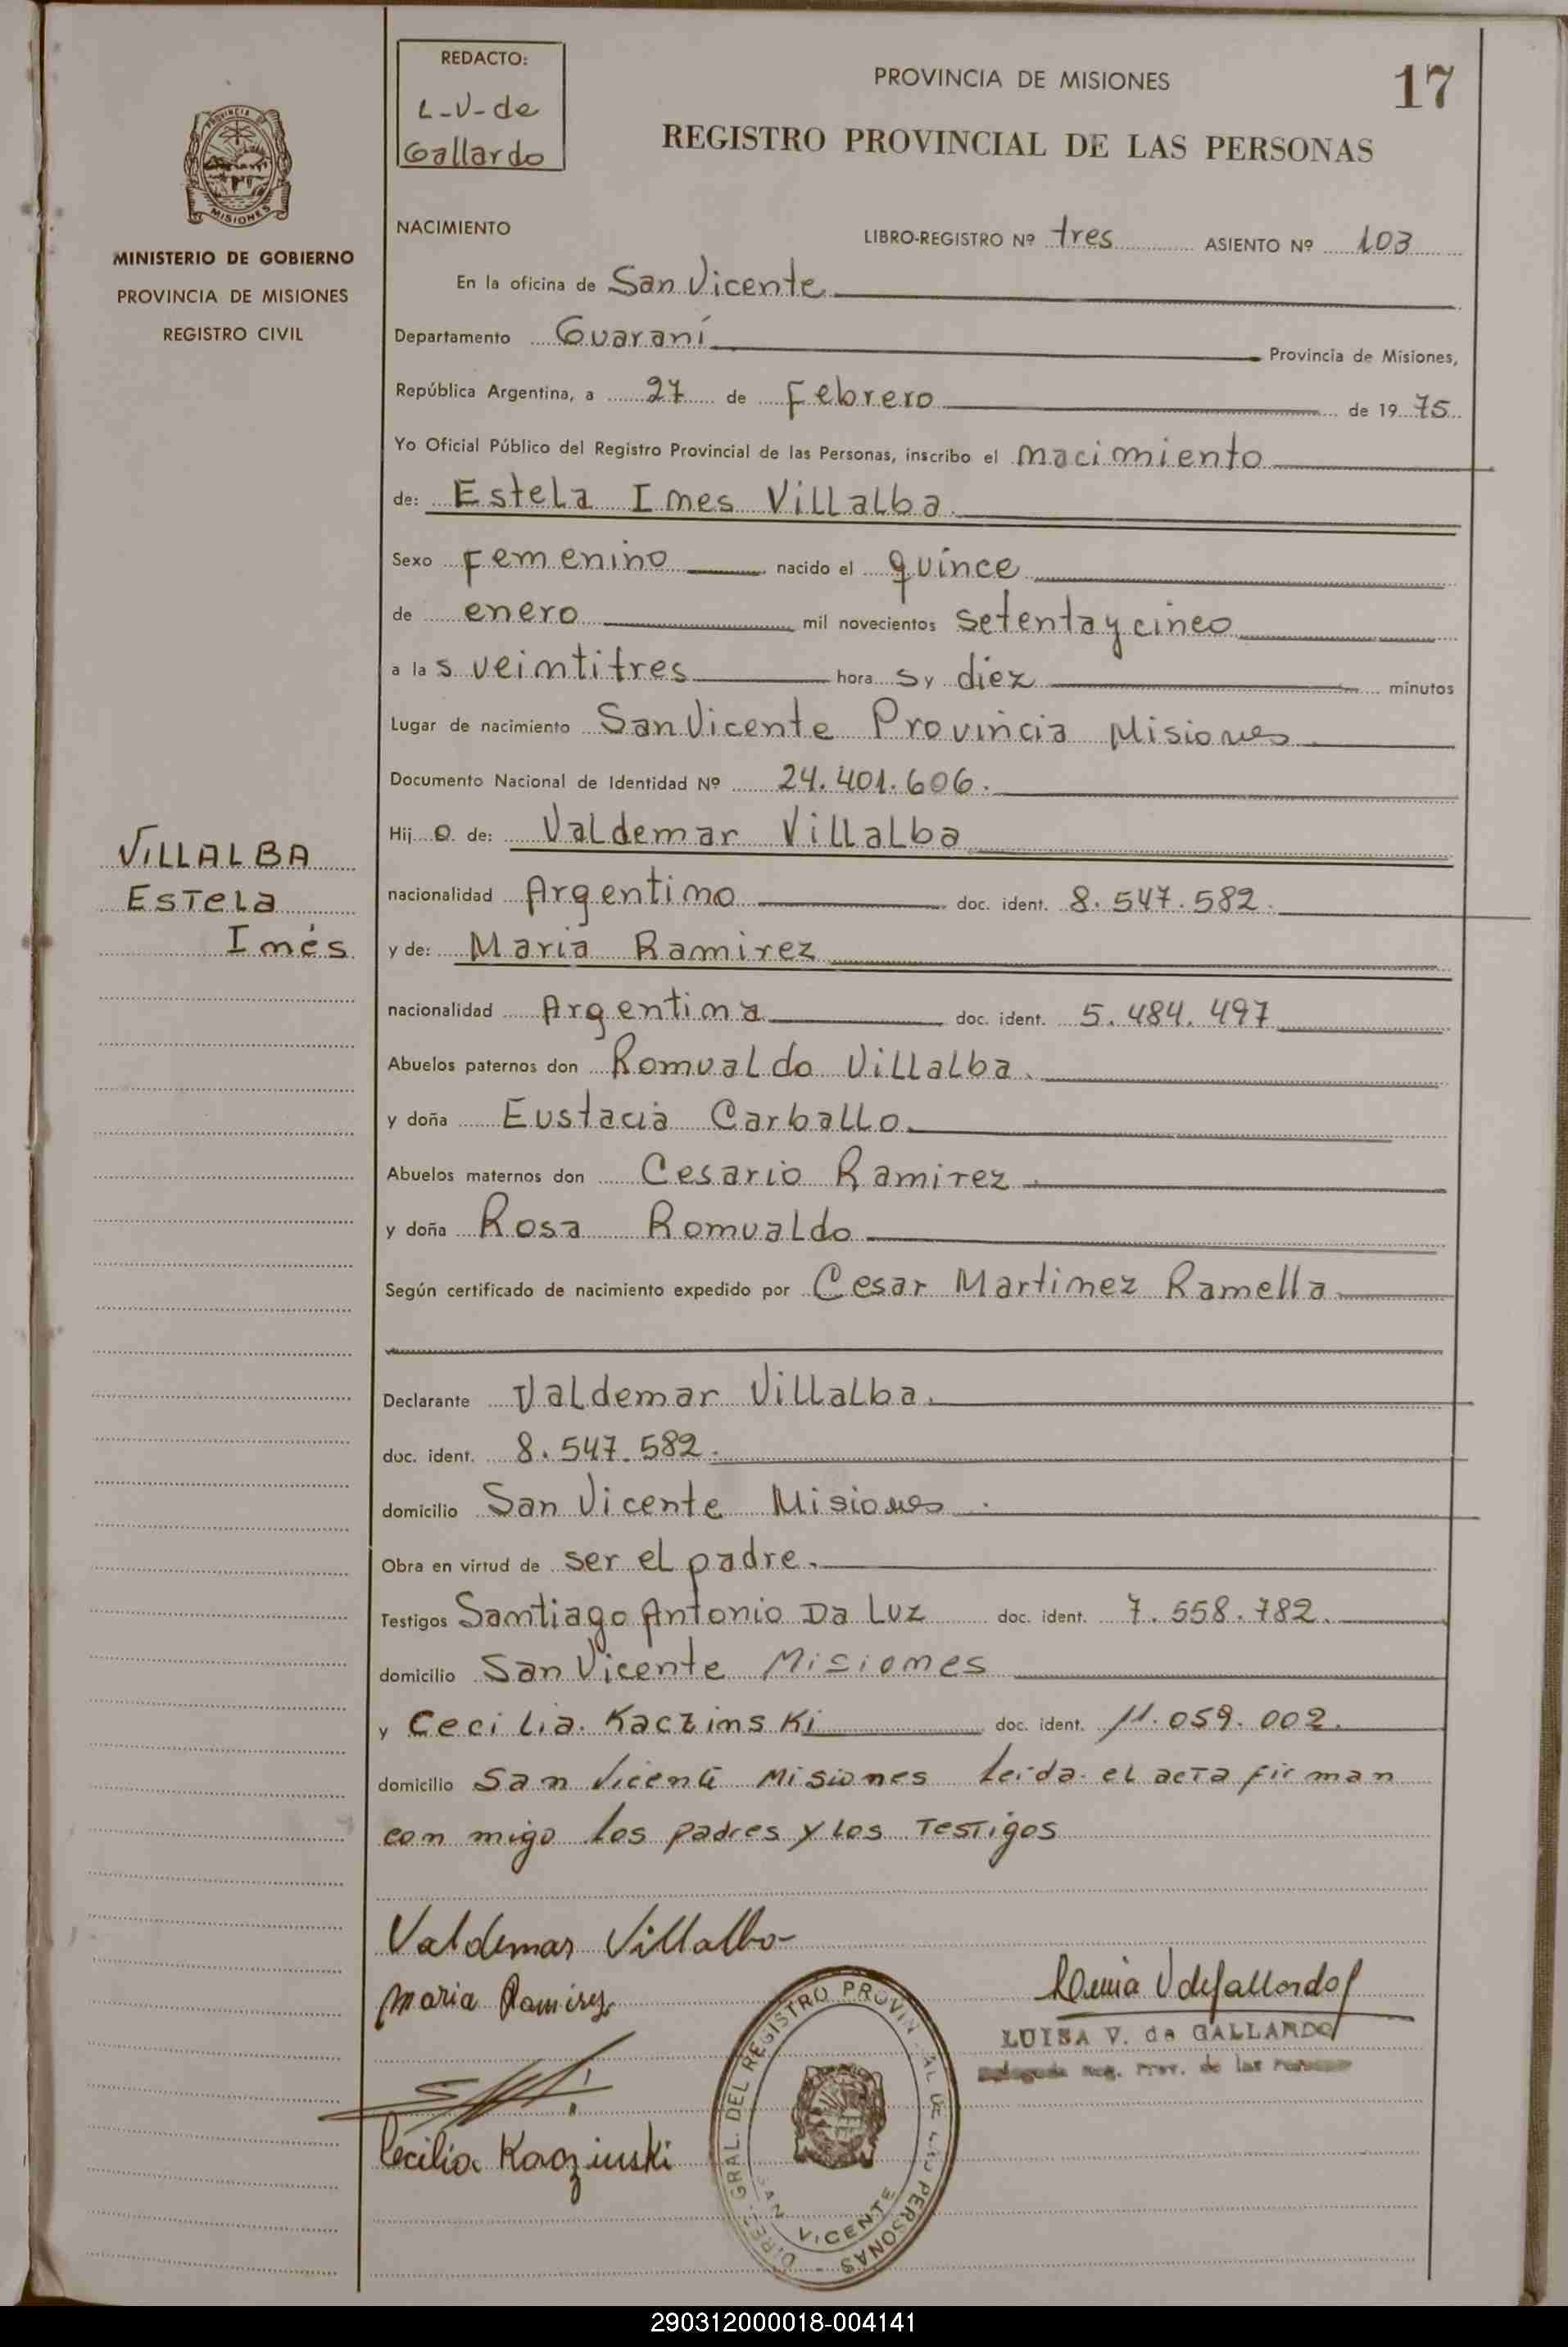 REDACTO:
L-V-de
Gallardo
PROVINCIA DE MISIONES
17
REGISTRO PROVINCIAL DE LAS PERSONAS
PROVINCIA DE
MISIONES
MINISTERIO DE GOBIERNO
PROVINCIA DE MISIONES
REGISTRO CIVIL
NACIMIENTO
LIBRO-REGISTRO Nº tres ASIENTO Nº 103
En la oficina de San Vicente
Departamento Guaraní Provincia de Misiones,
República Argentina, a 27 de Febrero de 19 75
Yo Oficial Público del Registro Provincial de las Personas, inscribo el nacimiento
de: Estela Ines Villalba
Sexo Femenino nacido el quince
de enero mil novecientos setenta y cinco
a la s veintitres hora s y diez minutos
Lugar de nacimiento San Vicente Provincia Misiones
Documento Nacional de Identidad Nº 24.401.606.
Hij o de: Valdemar Villalba
VILLALBA
Estela
Inés
nacionalidad Argentino doc. ident. 8.547.582.
y de: Maria Ramirez
nacionalidad Argentina doc. ident. 5.484.497
Abuelos paternos don Romualdo Villalba.
y doña Eustacia Carballo.
Abuelos maternos don Cesario Ramirez.
y doña Rosa Romualdo
Según certificado de nacimiento expedido por Cesar Martinez Ramella
Declarante Valdemar Villalba.
doc. ident. 8.547.582.
domicilio San Vicente Misiones.
Obra en virtud de ser el padre.
Testigos Santiago Antonio Da Luz doc. ident. 7.558.782.
domicilio San Vicente Misiones
y Cecilia Kaczinski doc. ident. 11.059.002.
domicilio San Vicente Misiones Leida el acta firman
con migo los padres y los Testigos
Valdemar Villalba
Maria Ramirez
Cecilia Kaczinski
LUISA V. de GALLARDO
Reg. Prov. de las
DIREC. GRAL. DEL REGISTRO PROVIN AL DE LAS PERSONAS
SAN VICENTE
290312000018-004141